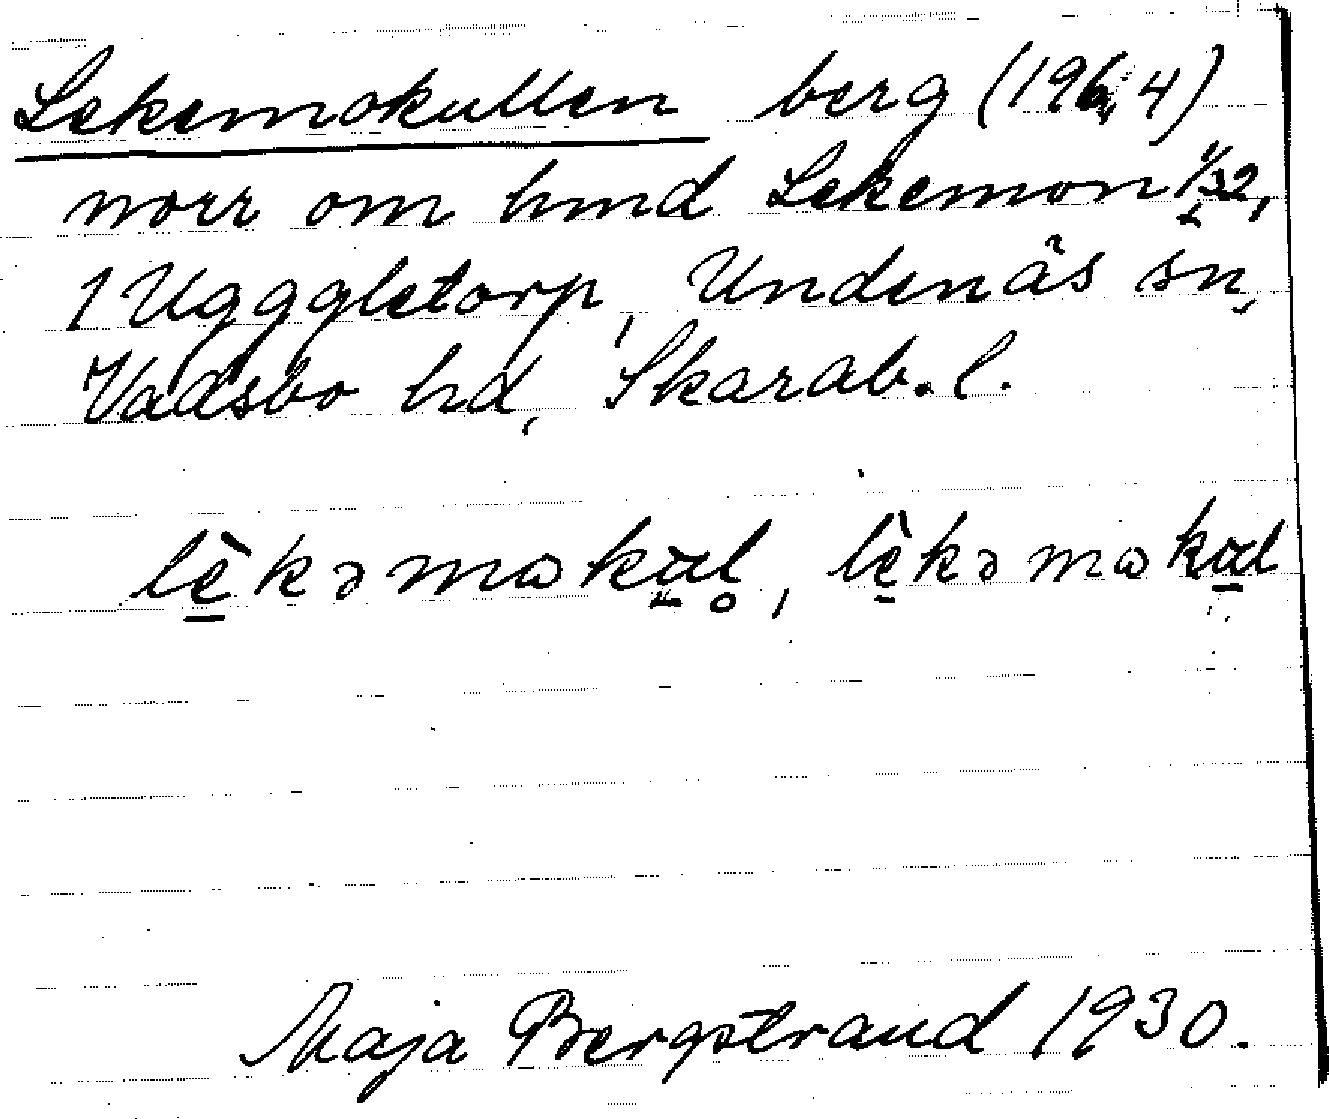 Lekemokullen berg (196,4)
norr om hmd Lekemon 1/32,
1 Ugggletorp, Undenäs sn,
Vadsbo hd, Skarab. l.
lèkəmωkul, lèkəmωkul
Maja Bergstrand 1930.